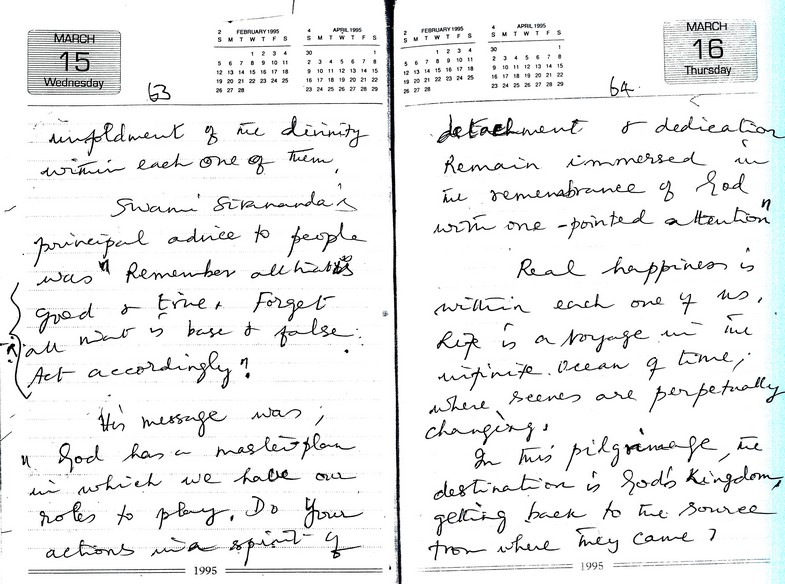 MARCH
15
Wednesday
2 FEBRUARY 1995
S M T W T F S
1 2 3 4
5 6 7 8 9 10 11
12 13 14 15 16 17 18
19 20 21 22 23 24 25
26 27 28
4 APRIL 1995
S M T W T F S
30 1
2 3 4 5 6 7 8
9 10 11 12 13 14 15
16 17 18 19 20 21 22
23 24 25 26 27 28 29
63
unfoldment of the divinity
within each one of them.
Swami Sivananda's
principal advice to people
was " Remember all that is
good & true. Forget
all that is base & false.
Act accordingly"
His message was,
" God has a masterplan
in which we have our
roles to play. Do Your
actions in a spirit of
1995
2 FEBRUARY 1995
S M T W T F S
1 2 3 4
5 6 7 8 9 10 11
12 13 14 15 16 17 18
19 20 21 22 23 24 25
26 27 28
4 APRIL 1995
S M T W T F S
30 1
2 3 4 5 6 7 8
9 10 11 12 13 14 15
16 17 18 19 20 21 22
23 24 25 26 27 28 29
MARCH
16
Thursday
64.
detachment & dedication
Remain immersed in
the remembrance of God
with one-pointed attention"
Real happiness is
within each one of us.
Life is a Voyage in the
infinite Ocean of time,
where scenes are perpetually
changing.
In this pilgrimage, the
destination is God's Kingdom,
getting back to the source
from where they came
1995